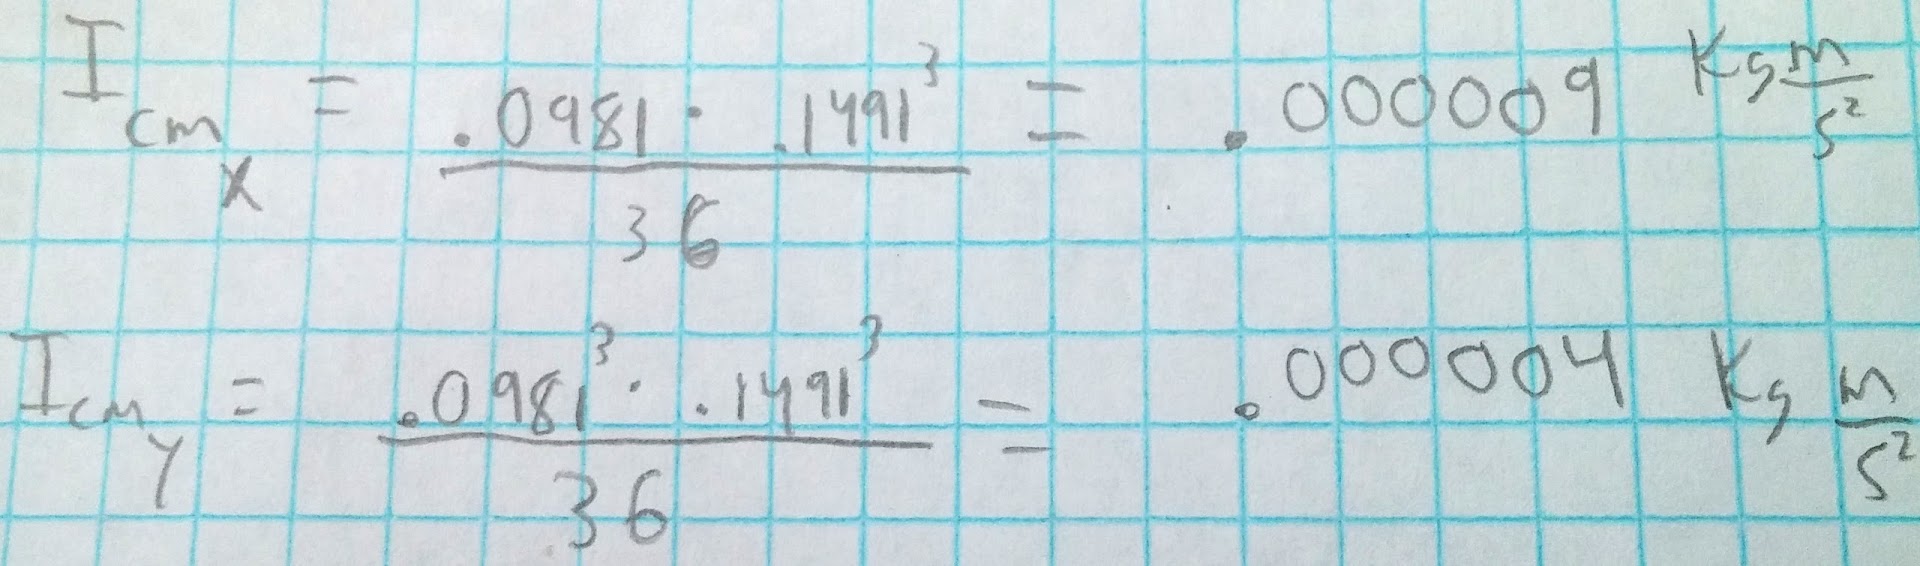 I_cm_x = .0981 · .1491³ / 36 = .000009 Kg m/s²
I_cm_y = .0981³ · .1491³ / 36 = .000004 Kg m/s²